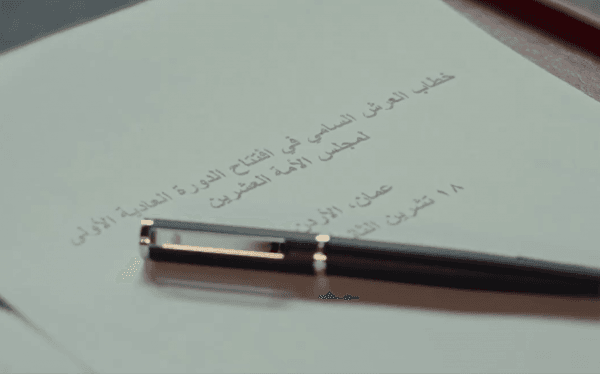 خطاب العرش السامي في افتتاح الدورة العادية الأولى
لمجلس الأمة العشرين
عمان، الأردن
١٨ تشرين